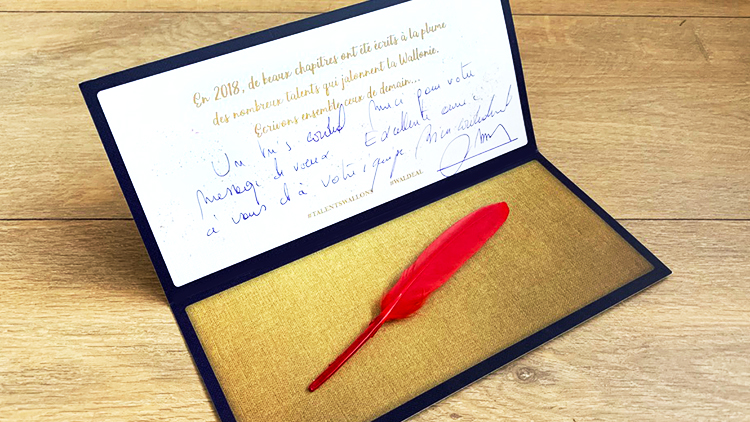 En 2018, de beaux chapitres ont été écrits à la plume
des nombreux talents qui jalonnent la Wallonie.
Ecrivons ensemble ceux de demain...
Un très cordial merci pour votre
message de voeux. Excellente année
à vous et à votre équipe. Bien cordialement
#TALENTSWALLONS #WALDEAL